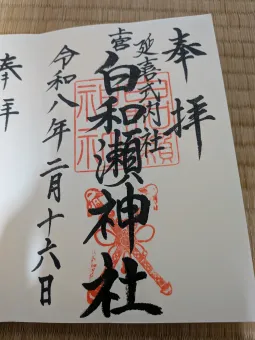 奉拝
延喜式内社
上宮
白和瀬神社
令和八年二月十六日
奉拝